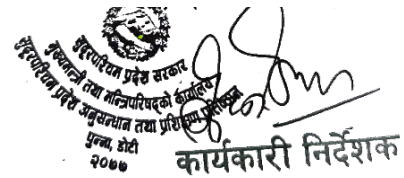 सुदूरपश्चिम प्रदेश सरकार
मुख्यमन्त्री तथा मन्त्रिपरिषद्को कार्यालय
सुदूरपश्चिम प्रदेश अनुसन्धान तथा प्रशिक्षण प्रतिष्ठान
डोटी
२०७७
कार्यकारी निर्देशक